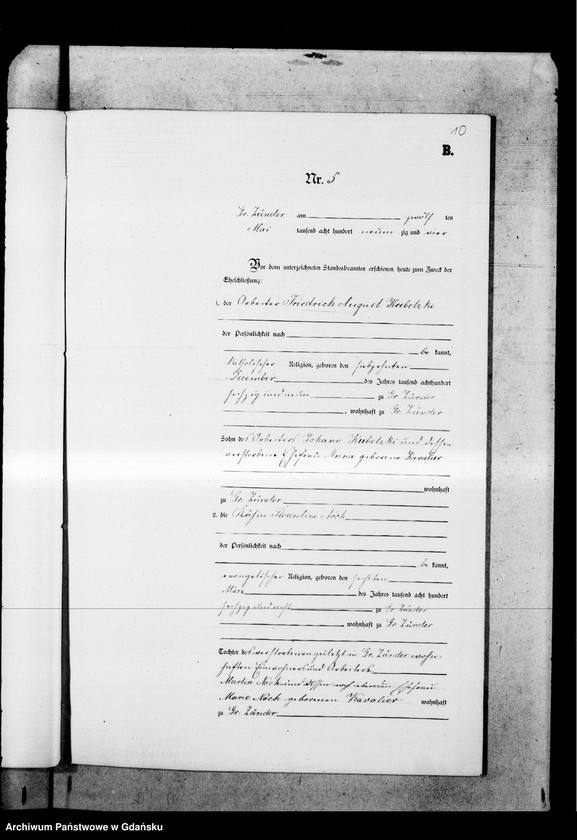 10
B.
Nr. 5
Gr. Zünder am zwölf ten
Mai tausend acht hundert neun zig und vier
Vor dem unterzeichneten Standesbeamten erschienen heute zum Zweck der
Eheschließung:
1. der Arbeiter Friedrich August Kubelzki
der Persönlichkeit nach
be kannt,
katholischer Religion, geboren den siebzehnten
December des Jahres tausend achthundert
sechzig und neun zu Gr. Zünder
, wohnhaft zu Gr. Zünder
Sohn des Arbeiters Johann Kubelzki und dessen
verstorbene Ehefrau Anna geborene Kavalier
wohnhaft
zu Gr. Zünder
2. die Florentine Nöck
der Persönlichkeit nach
be kannt,
evangelischer Religion, geboren den sechsten
März des Jahres tausend acht hundert
sechzig und acht zu Gr. Zünder
, wohnhaft zu Gr. Zünder
Tochter des verstorbenen zuletzt in Gr. Zünder wohn
haften Einwohners und Arbeiters
Martin Nöck und dessen noch lebenden Ehefrau
Marie Nöck geborenen Kavalier wohnhaft
zu Gr. Zünder
Archiwum Państwowe w Gdańsku